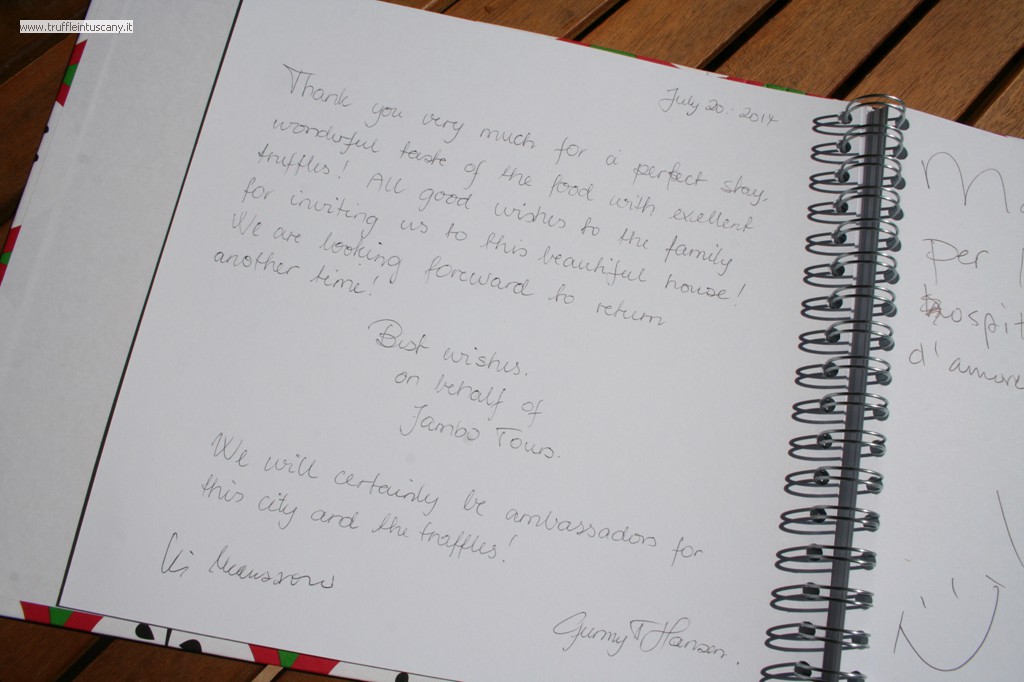 www.truffleintuscany.it
July 20.. 2014
Thank you very much for a perfect stay,
wonderful taste of the food with exellent
truffles! All good wishes to the family
for inviting us to this beautiful house!
We are looking foreward to return
another time!
Best wishes.
on behalf of
Jambo Tours.
We will certainly be ambassadors for
this city and the truffles!
Hansen.
Per
d'amore